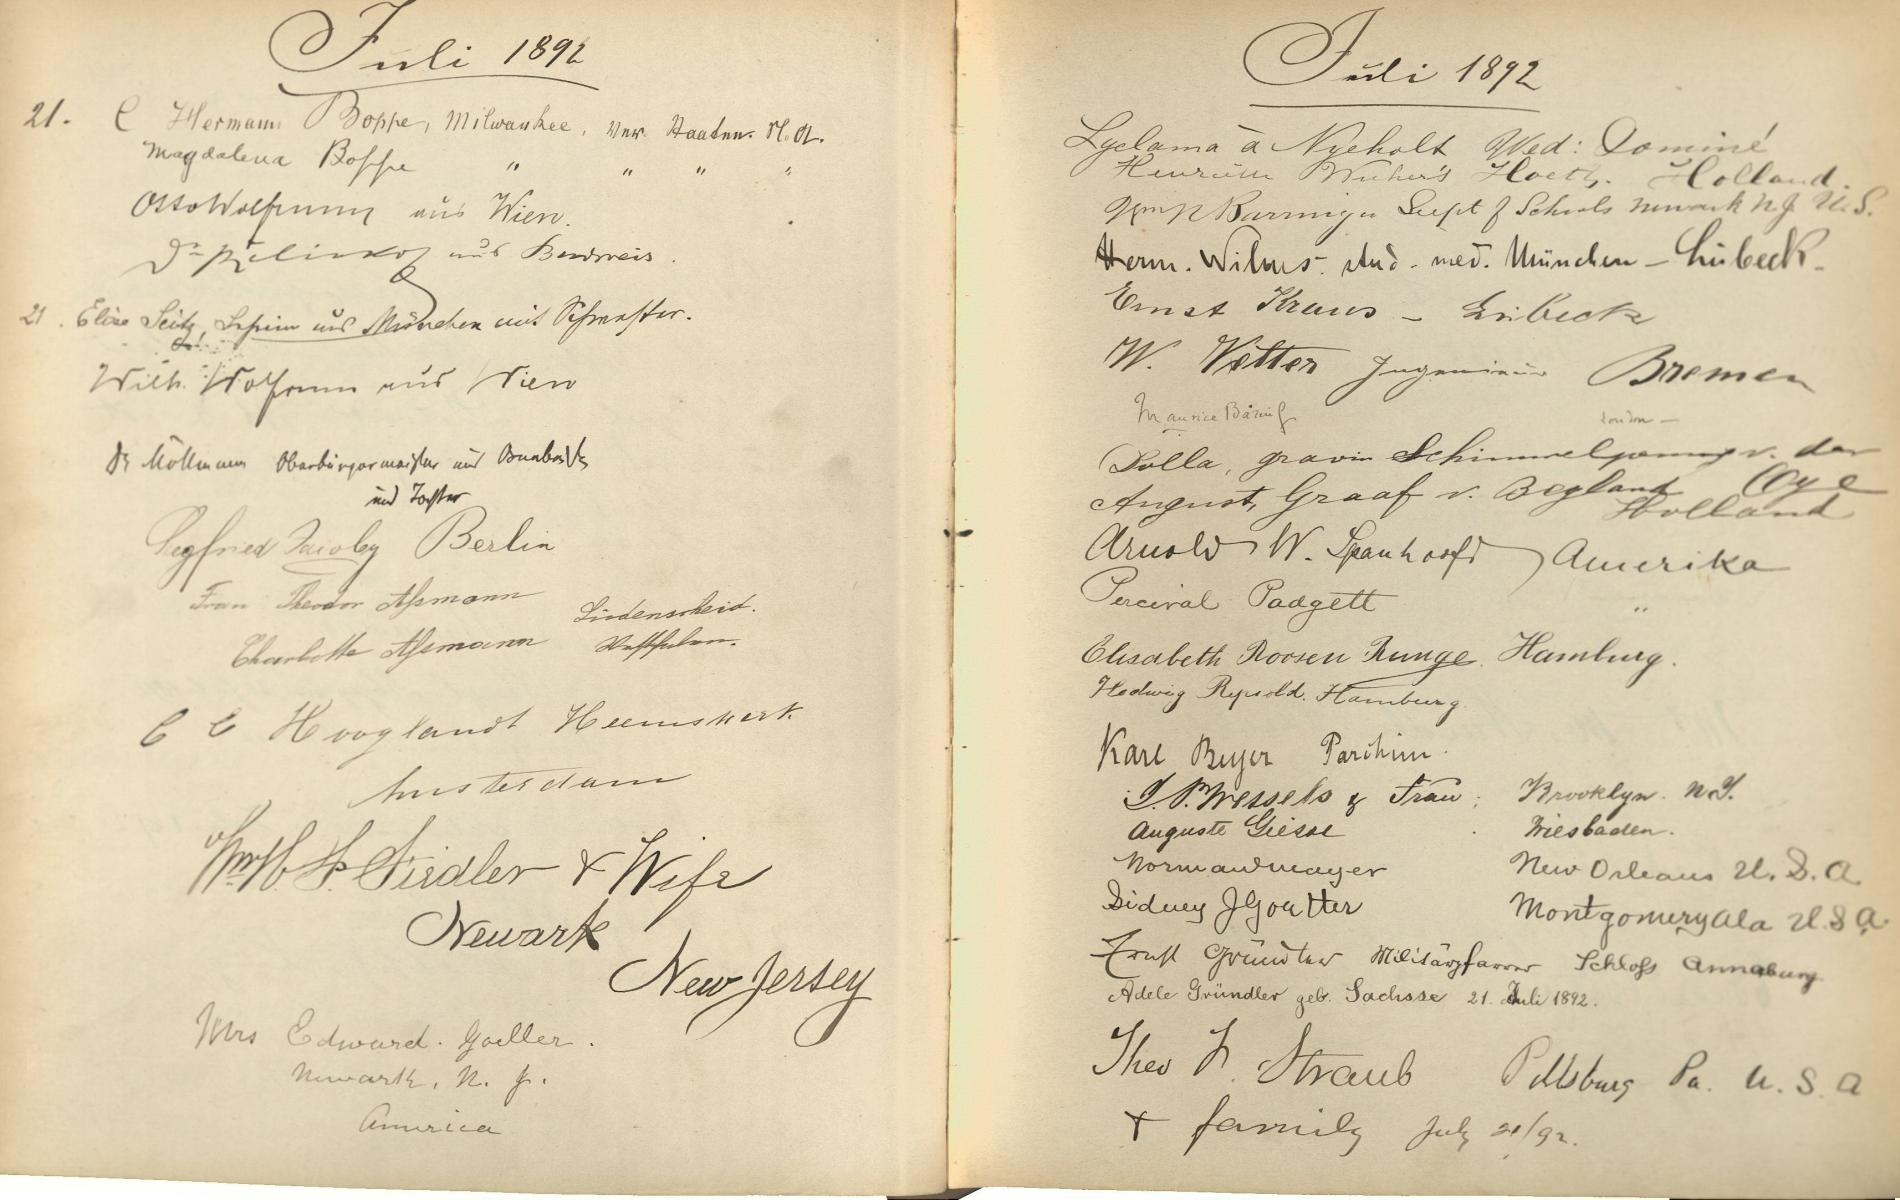 Juli 1892
21. C Hermann Boppe, Milwaukee, Ver. Staaten. N. A.
Magdalena Boppe " " " "
Otto Wolfrum aus Wien.
Dr aus Budweis.
21. Elise Seitz, aus München mit Schwester.
Wilh. Wolfrum aus Wien
Dr Möllmann Oberbürgermeister aus
und Tochter
Siegfried Jacoby Berlin
Frau Theodor Assmann Lüdenscheid.
Charlotte Assmann Westfalen.
C C Hooglandt Heemskerk
Amsterdam
Wm H. F. Fiedler & Wife
Newark
New Jersey
Mrs Edward. Goeller.
Newark, N. J.
America
Juli 1892
Lyclama à Nyeholt Wed: Dominé
Holland.
Supt of Schools Newark N J U. S.
Herm. Wilms. stud. med. München – Lübeck.
Ernst Kraus – Lübeck
W. Vetter Ingenieur Bremen
Maurice Baring London –
Dolla, gravin Schimmelpenninck v. der
Oye
August, Graaf v. Bylandt Holland
Arnold W. Spanhoofd Amerika
Percival Padgett "
Elisabeth Roosen Runge. Hamburg.
Hedwig Repsold. Hamburg.
Karl Beyer Parchim.
J. P. Wessels & Frau; Brooklyn. N.Y.
Auguste Giesse Wiesbaden.
Norman Mayer New Orleans U. S. A
Sidney J Goetter Montgomery Ala U. S A.
Ernst Gründler Militärpfarrer Schloss Annaburg
Adele Gründler geb. Sachsse 21. Juli 1892.
Theo F. Straub Pittsburg Pa. U. S. A
& family July 21/92.